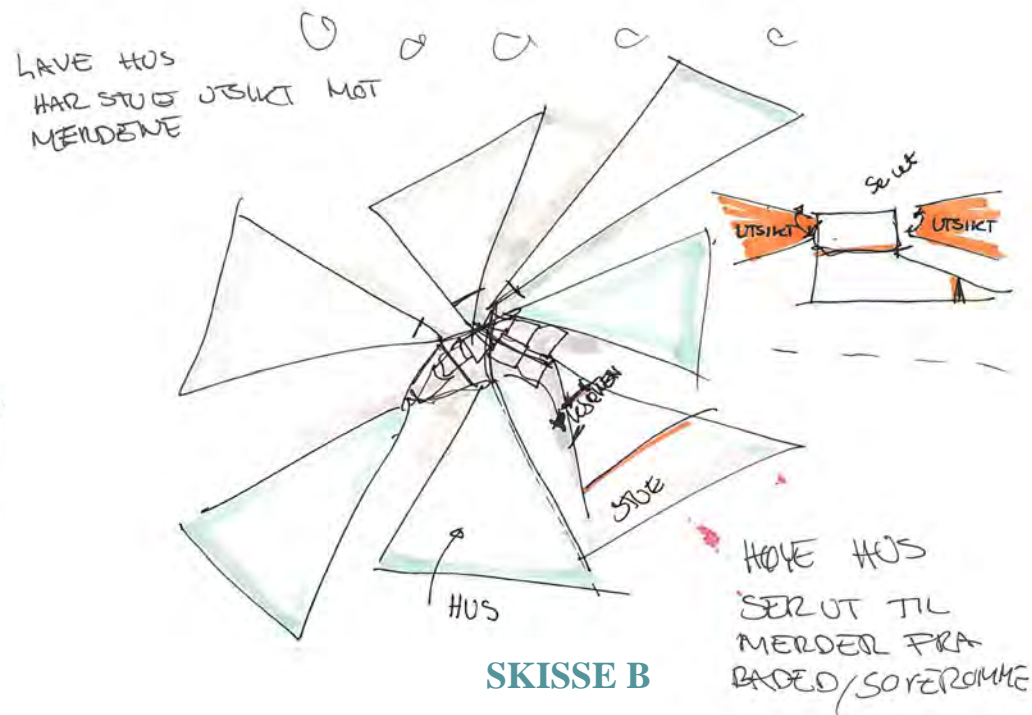 LAVE HUS
HAR STUE UTSIKT MOT
MERDENE
Se ut
UTSIKT
UTSIKT
STUE
HUS
HØYE HUS
SER UT TIL
MERDER FRA
BADED/SOVEROMME
SKISSE B